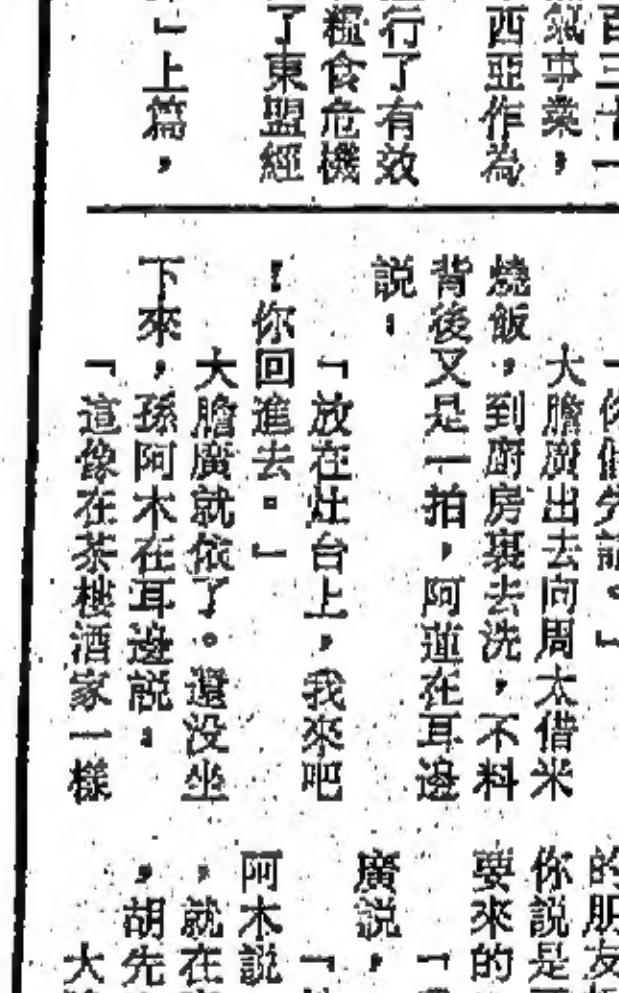 百三十一
氣事業，
西亞作為
行了有效
糧食危機
了東盟經
」上篇，
「你儘先說。」
大膽廣出去向周太借米
燒飯，到廚房裏去洗，不料
背後又是一拍，阿蓮在耳邊
説：
「放在灶台上，我來吧
！你回進去。」
大膽廣就依了。還没坐
下來，孫阿木在耳邊説：
「這像在茶樓酒家一樣
的朋友
你説是
要來的
廣説，
阿木説
，就在
，胡先
大